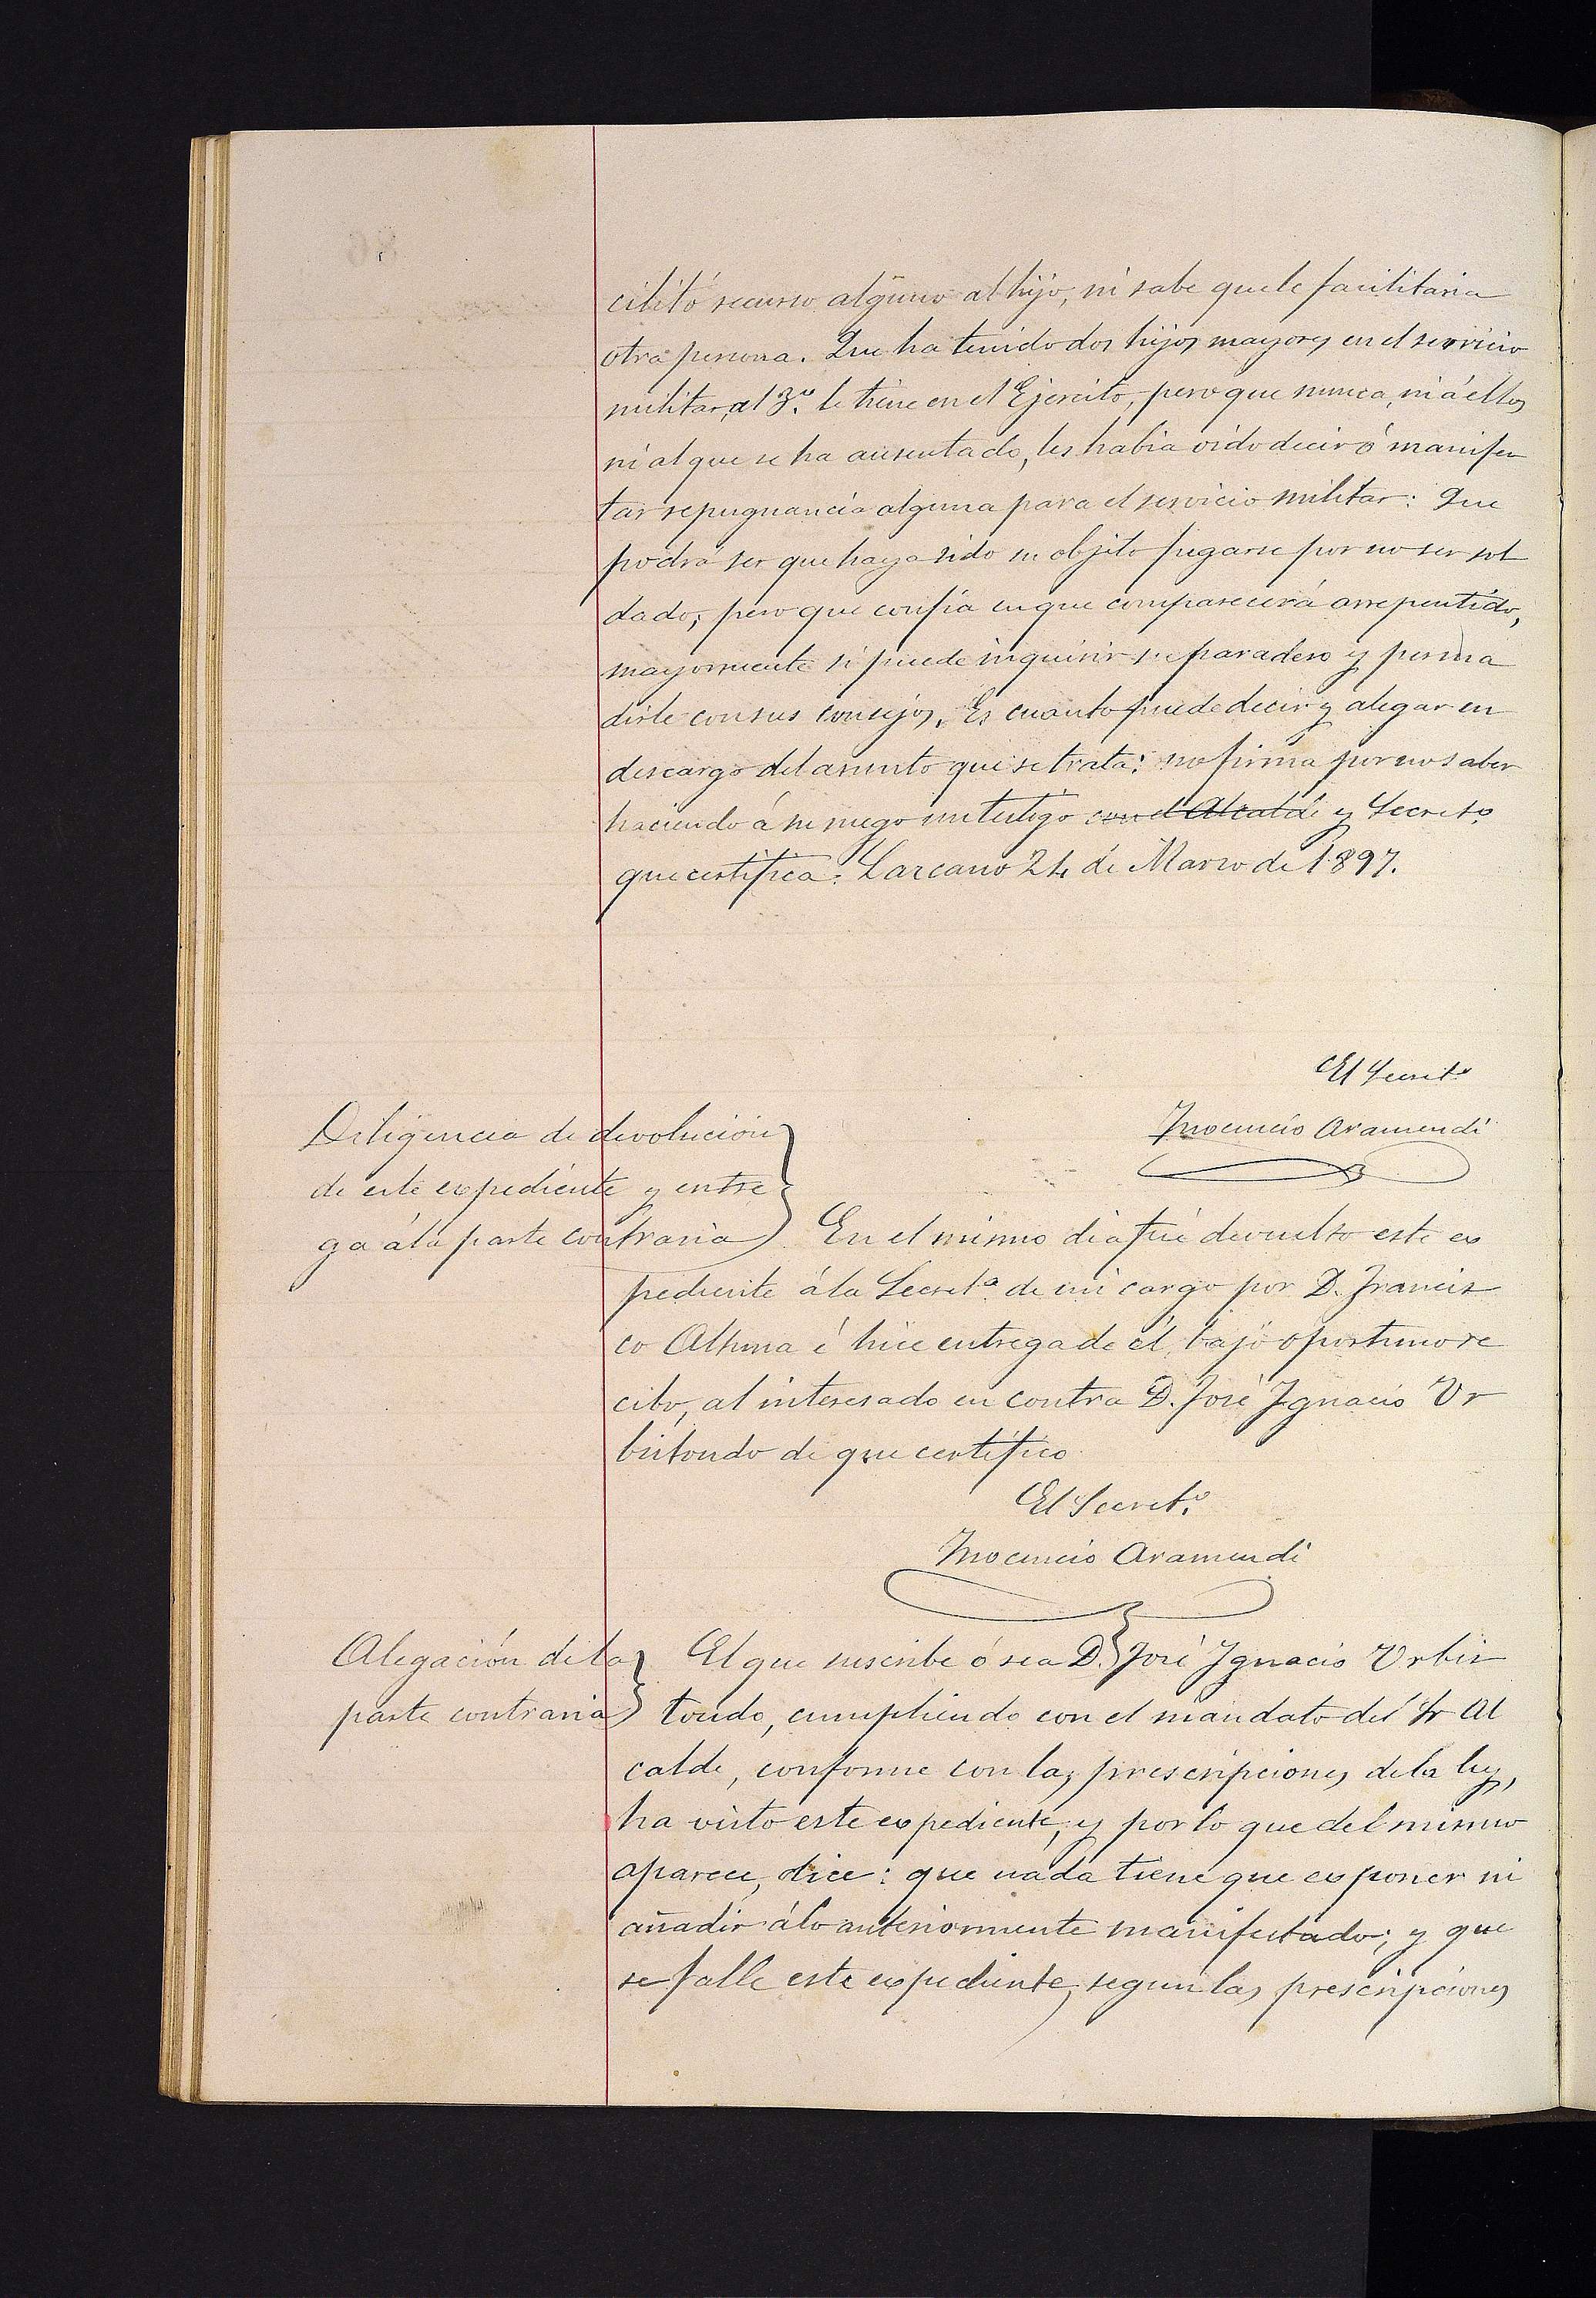 cilitó recurso alguno al hijo, ni sabe que le facilitaria
otra persona. Que ha tenido dos hijos mayores en el servicio
militar, al 3.º le tiene en el Ejercito, pero que nunca, ni á ellos
ni al que se ha ausentado, les habia oido decir ó manifes
tar repugnancia alguna para el servicio militar: Que
podrá ser que haya sido su objeto fugarse por no ser sol
dado; pero que confia en que comparecerá arrepentido,
mayormente si puede inquirir su paradero y persua
dirle con sus consejos. Es cuanto puede decir y alegar en
descargo del asunto que se trata: no firma por no saber
haciendo á su ruego un testigo con el Alcalde y Secretº
que certifica: Lazcano 24 de Marzo de 1897.
El Secretº
Inocencio Aramendi
Diligencia de devolución
de este expediente y entre
ga á la parte contraria
En el mismo dia fué devuelto este ex
pediente á la Secretª de mi cargo por D. Francis
co Altuna é hice entrega de él, bajo oportuno re
cibo, al interesado en contra D. José Ignacio Ur
bistondo de que certifico
El Secretº
Inocencio Aramendi
Alegación de la
parte contraria
El que suscribe ó sea D. José Ignacio Urbis
tondo, cumpliendo con el mandato del Sr Al
calde, conforme con las prescripciones de la ley,
ha visto este expediente, y por lo que del mismo
aparece, dice: que nada tiene que exponer ni
añadir á lo anteriormente manifestado; y que
se falle este expediente, segun las prescripciones